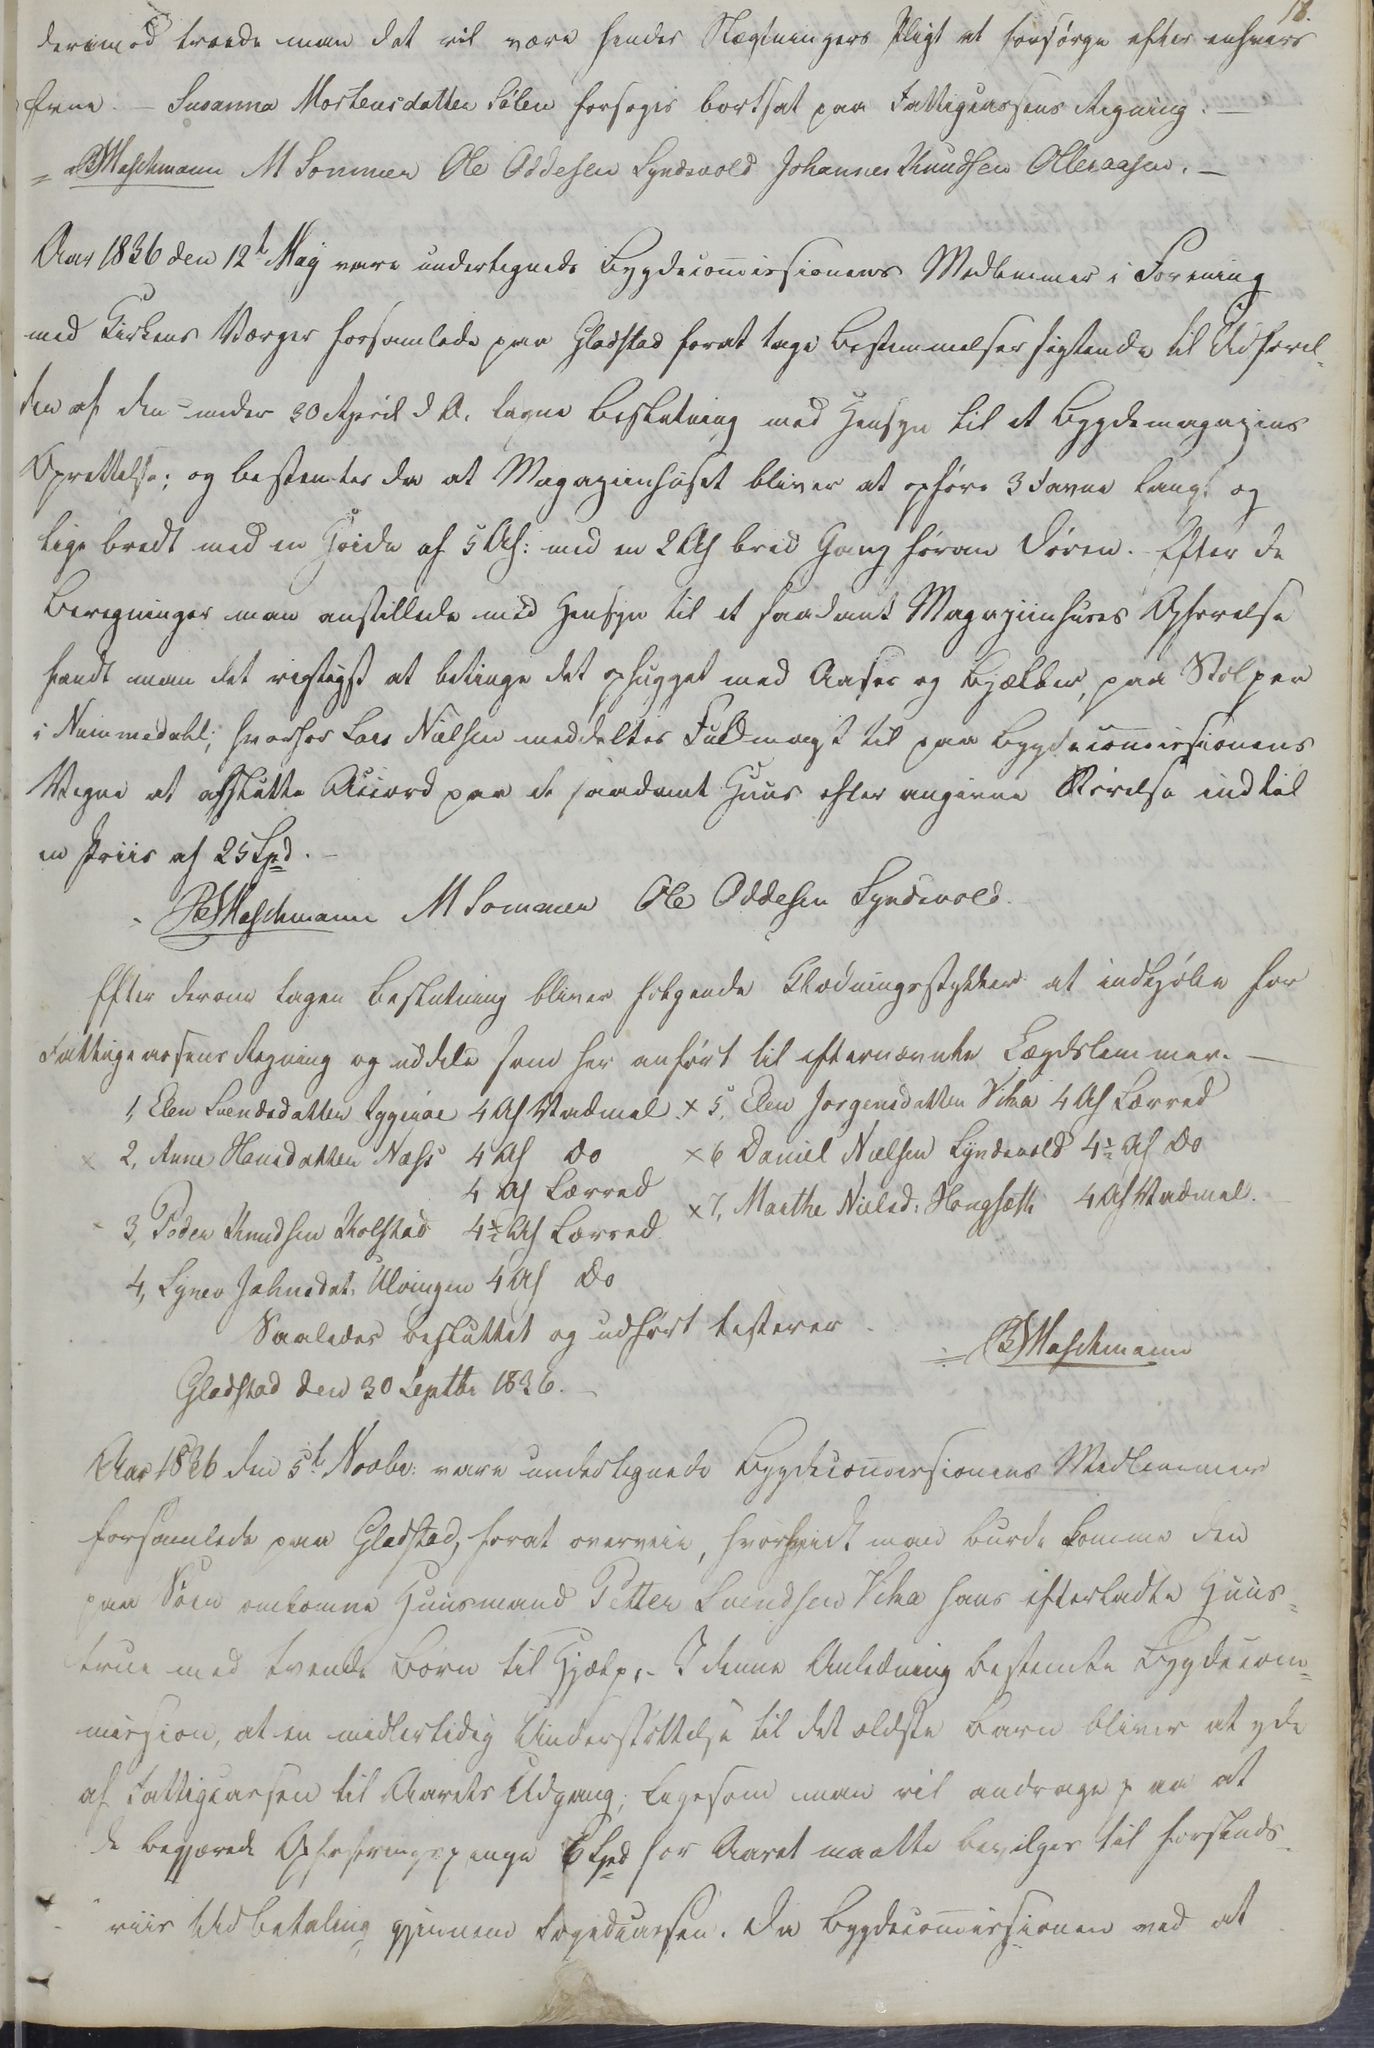 18.
derimod troede man det vil være hendes Slægtningers Pligt at forsørge efter enhvers
Evne. – Susanna Mortensdatter Sølen forsøges bortsat paa Fattigcassens Regning. –
Maschmann M Sommer Ole Oddesen Lyndsvold Johannes Knudsen Olleraasen. –
Aar 1836 den 12t May vare undertegnede Bygdecommissionens Medlemmer i Forening
med Kirkens Værger forsamlede paa Gladstad forat tage Bestemmelser sigtende til Udførel-
sen af den under 30 April d A. tagne Beslutning med Hensyn til et Bygdemagazins
Oprettelse; og bestemtes da at Magazinhuset bliver at opføre 3 Favne langt og
lige bredt med en Høide af 5 Al: med en 2 Al bred Gang foran Døren. Efter de
Beregninger man anstillede med Hensyn til et saadant Magazinhuses Opførelse
fandt man det rigtigst at betinge det ophugget med Aaser og Bjælker, paa Stolper
i Nummedahl; hvorfor Lars Nielsen meddeltes Fuldmagt til paa Bygdecommissionens
Vegne at afslutte Accord paa et saadant Huus efter angivne Størelse indtil
en Priis af 25 Spd. –
Maschmann M Sommer Ole Oddesen Lyndsvold.
Efter derom tagen Beslutning bliver følgende Klædningsstykker at indkjøbe for
Fattigcassens Regning og uddele som her anført til efternævnte Lægdslemmer. –
1, Elen Svendsdatter 4 Al Vadmel x 5, Elen Jørgensdatter Vika 4 Al Lærred
x 2, Anne Hansdatter Næss 4 Al Do x 6 Daniel Nielsen Lyndsvold 4½ Al Do
4 Al Lærred
x 7, Marthe Nielsd: 4 Al Vadmel.
3, Peder Knudsen Kolstad 4½ Al Lærred
4, Johnsdat: Ulvingen 4 Al Do
Saaledes besluttet og udført testerer
Maschmann
Gladstad den 30 Septbr 1836. –
Aar 1836 den 5t Novbr: vare undertegnede Bygdecommissionens Medlemmer
forsamlede paa Gladstad, forat overveie, hvorvidt man burde komme den
paa Søen omkomne Huusmand Petter Svendsen Vika hans efterladte Huus-
true med tvende Børn til Hjælp. – I denne Anledning bestemte Bygdecom-
mission, at en midlertidig Understøttelse til det ældste Barn bliver at yde
af Fattigcassen til Aarets Udgang; ligesom man vil andrage paa at
de begjærede Opfostringspenge 6 Spd for Aaret maatte bevilges til forskuds-
viis Udbetaling gjennem Fogedcassen. Da Bygdecommissionen ved at